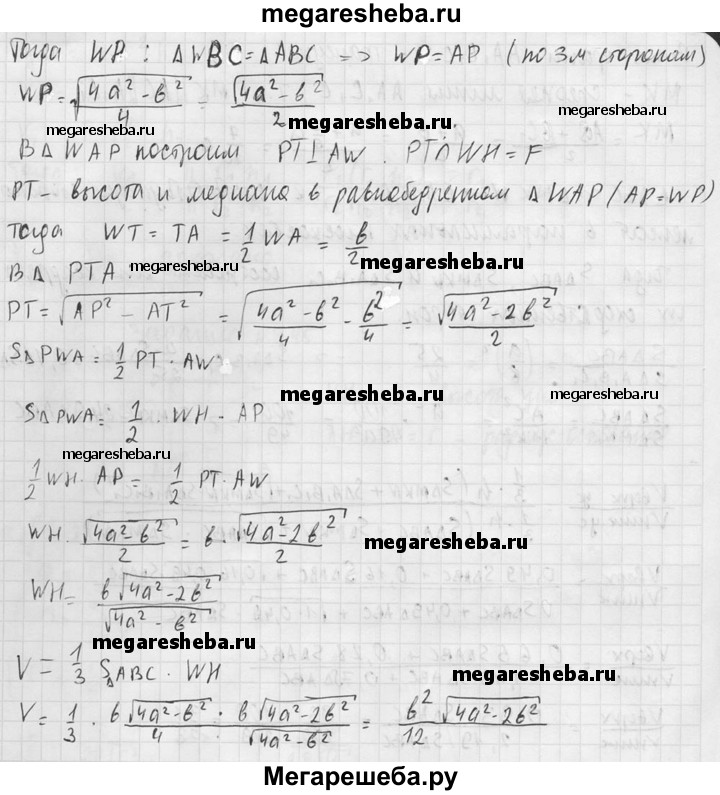 megaresheba.ru
Тогда WP : △WBC=△ABC => WP=AP (по 3м сторонам)
megaresheba.ru
WP=√(4a²-b²)/4 = √(4a²-b²)/2
megaresheba.ru
megaresheba.ru
В△ WAP построим PT⊥AW . PT∩WH=F
PT- высота и медиана в равнобедренном △WAP(AP=WP)
Тогда WT=TA = 1/2 WA = b/2
megaresheba.ru
В△ PTA.
megaresheba.ru
PT=√(AP²-AT²) = √((4a²-b²)/4 - b²/4) = √(4a²-2b²)/2
S△PWA=1/2 PT·AW
megaresheba.ru
S△PWA=1/2·WH·AP
megaresheba.ru
1/2 WH·AP= 1/2 PT·AW
WH·√(4a²-b²)/2 = b·√(4a²-2b²)/2
megaresheba.ru
WH= b√(4a²-2b²)/√(4a²-b²)
megaresheba.ru
V= 1/3 S△ABC·WH
megaresheba.ru
V= 1/3 · b√(4a²-b²)/4 · b√(4a²-2b²)/√(4a²-b²) = b²√(4a²-2b²)/12
Мегарешеба.ру